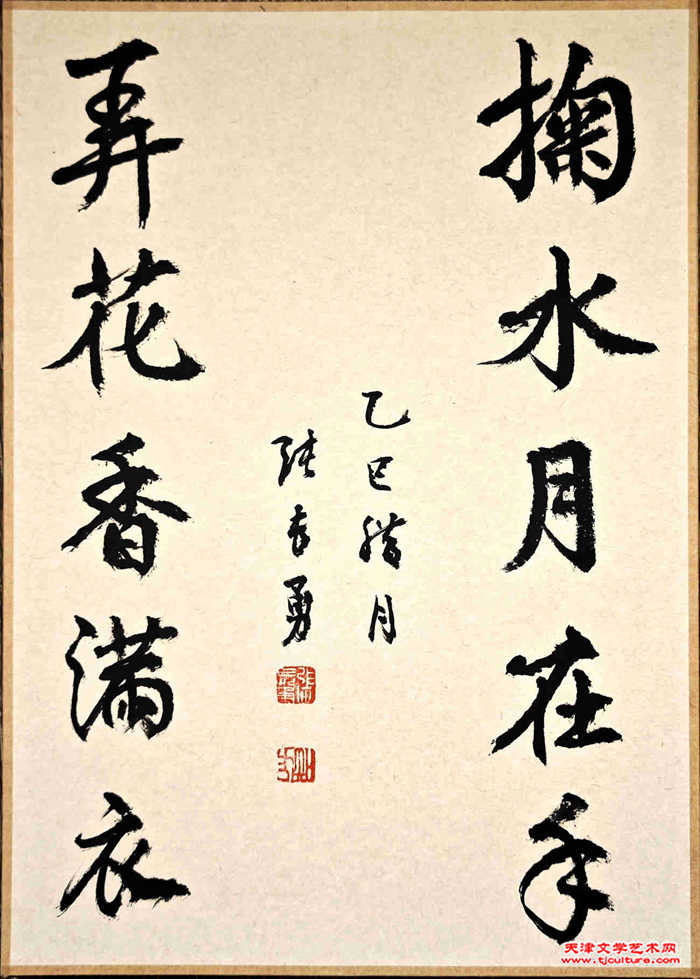 掬水月在手
弄花香满衣
乙巳腊月
张长勇
天津文学艺术网
www.tjculture.com